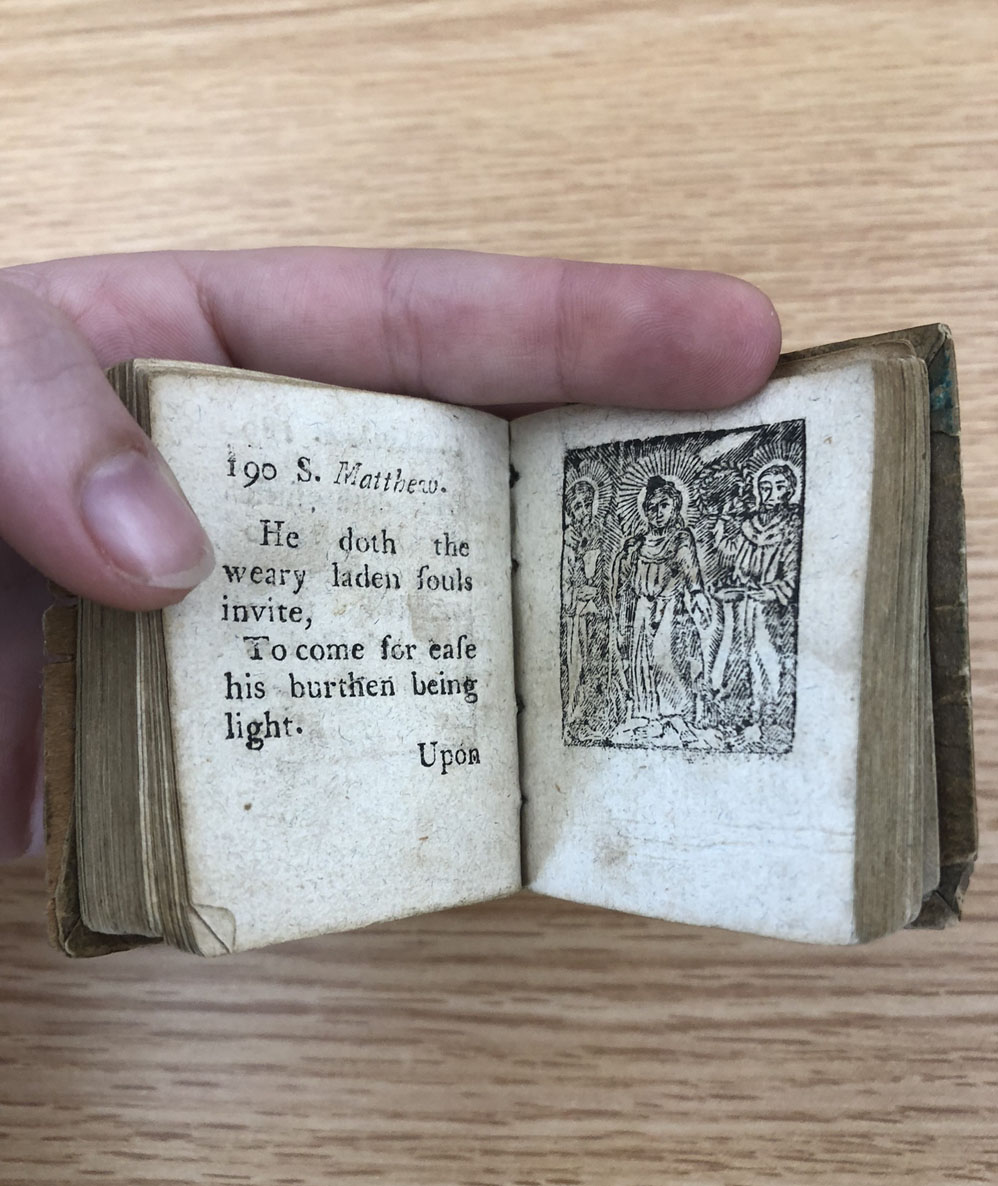 190 S. Matthew.
He doth the
weary laden ſouls
invite,
To come for eaſe
his burthen being
light.
Upon